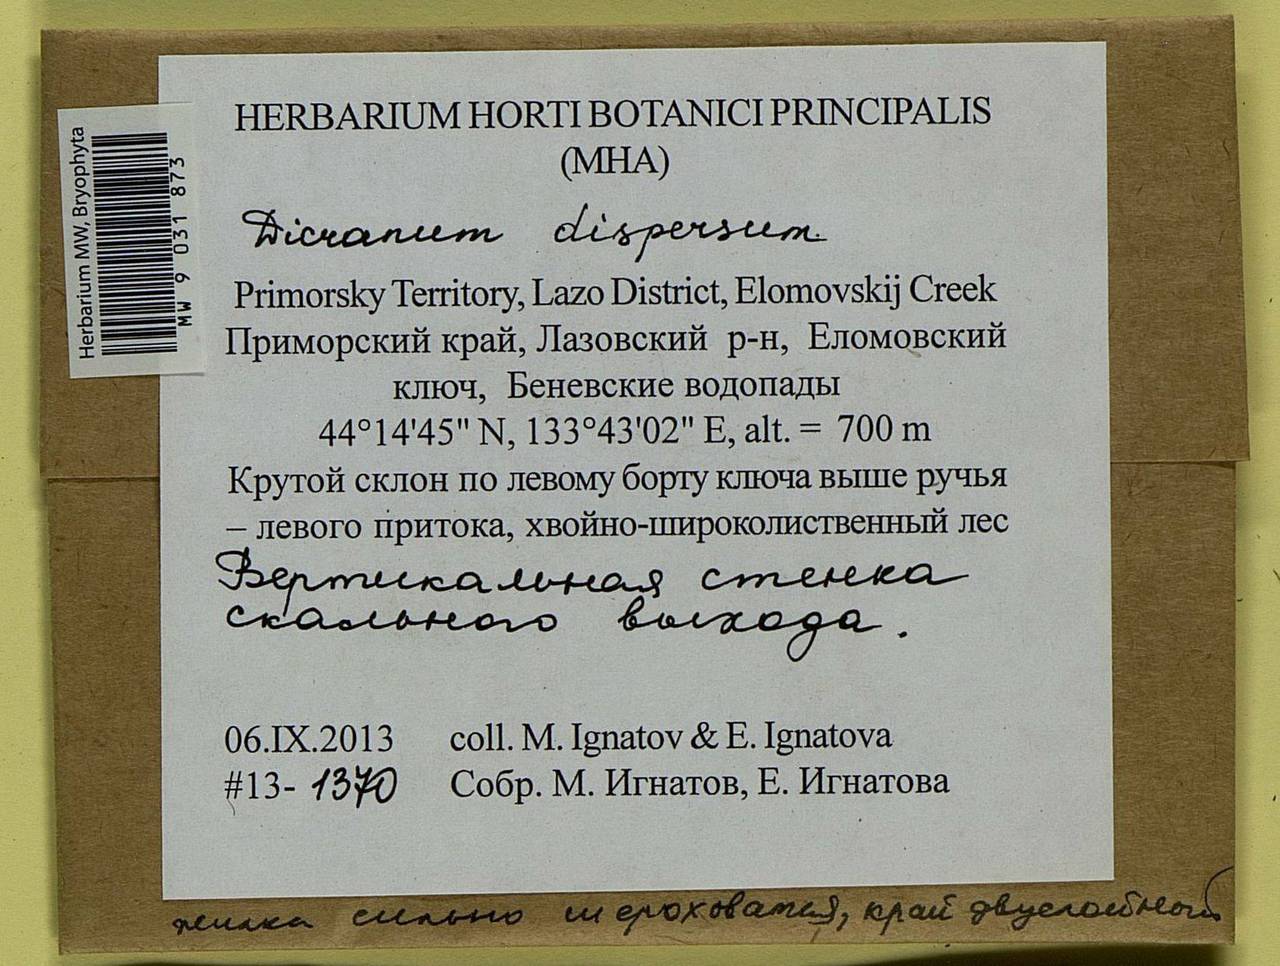 HERBARIUM HORTI BOTANICI PRINCIPALIS
(MHA)
Dicranum dispersum
Primorsky Territory, Lazo District, Elomovskij Creek
Приморский край, Лазовский р-н, Еломовский
ключ, Беневские водопады
44°14'45" N, 133°43'02" E, alt. = 700 m
Крутой склон по левому борту ключа выше ручья
– левого притока, хвойно-широколиственный лес
Вертикальная стенка
скального выхода.
06.IX.2013 coll. M. Ignatov & E. Ignatova
#13-1370 Собр. М. Игнатов, Е. Игнатова
жилка сильно шероховатая, край двуслойный
Herbarium MW, Bryophyta
MW 9 031 873